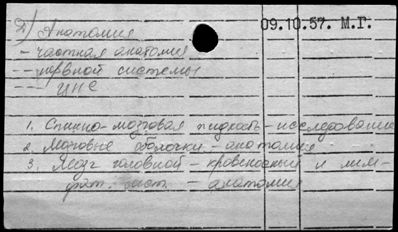 09.10.57. М.Г.
Д) Анатомия
- частная анатомия
- нервной системы
- ЦНС
1. Спинно-мозговая жидкость - исследование
2. Мозговые оболочки - анатомия
3. Мозг головной - кровеносная и лим-
фат. сист. - анатомия